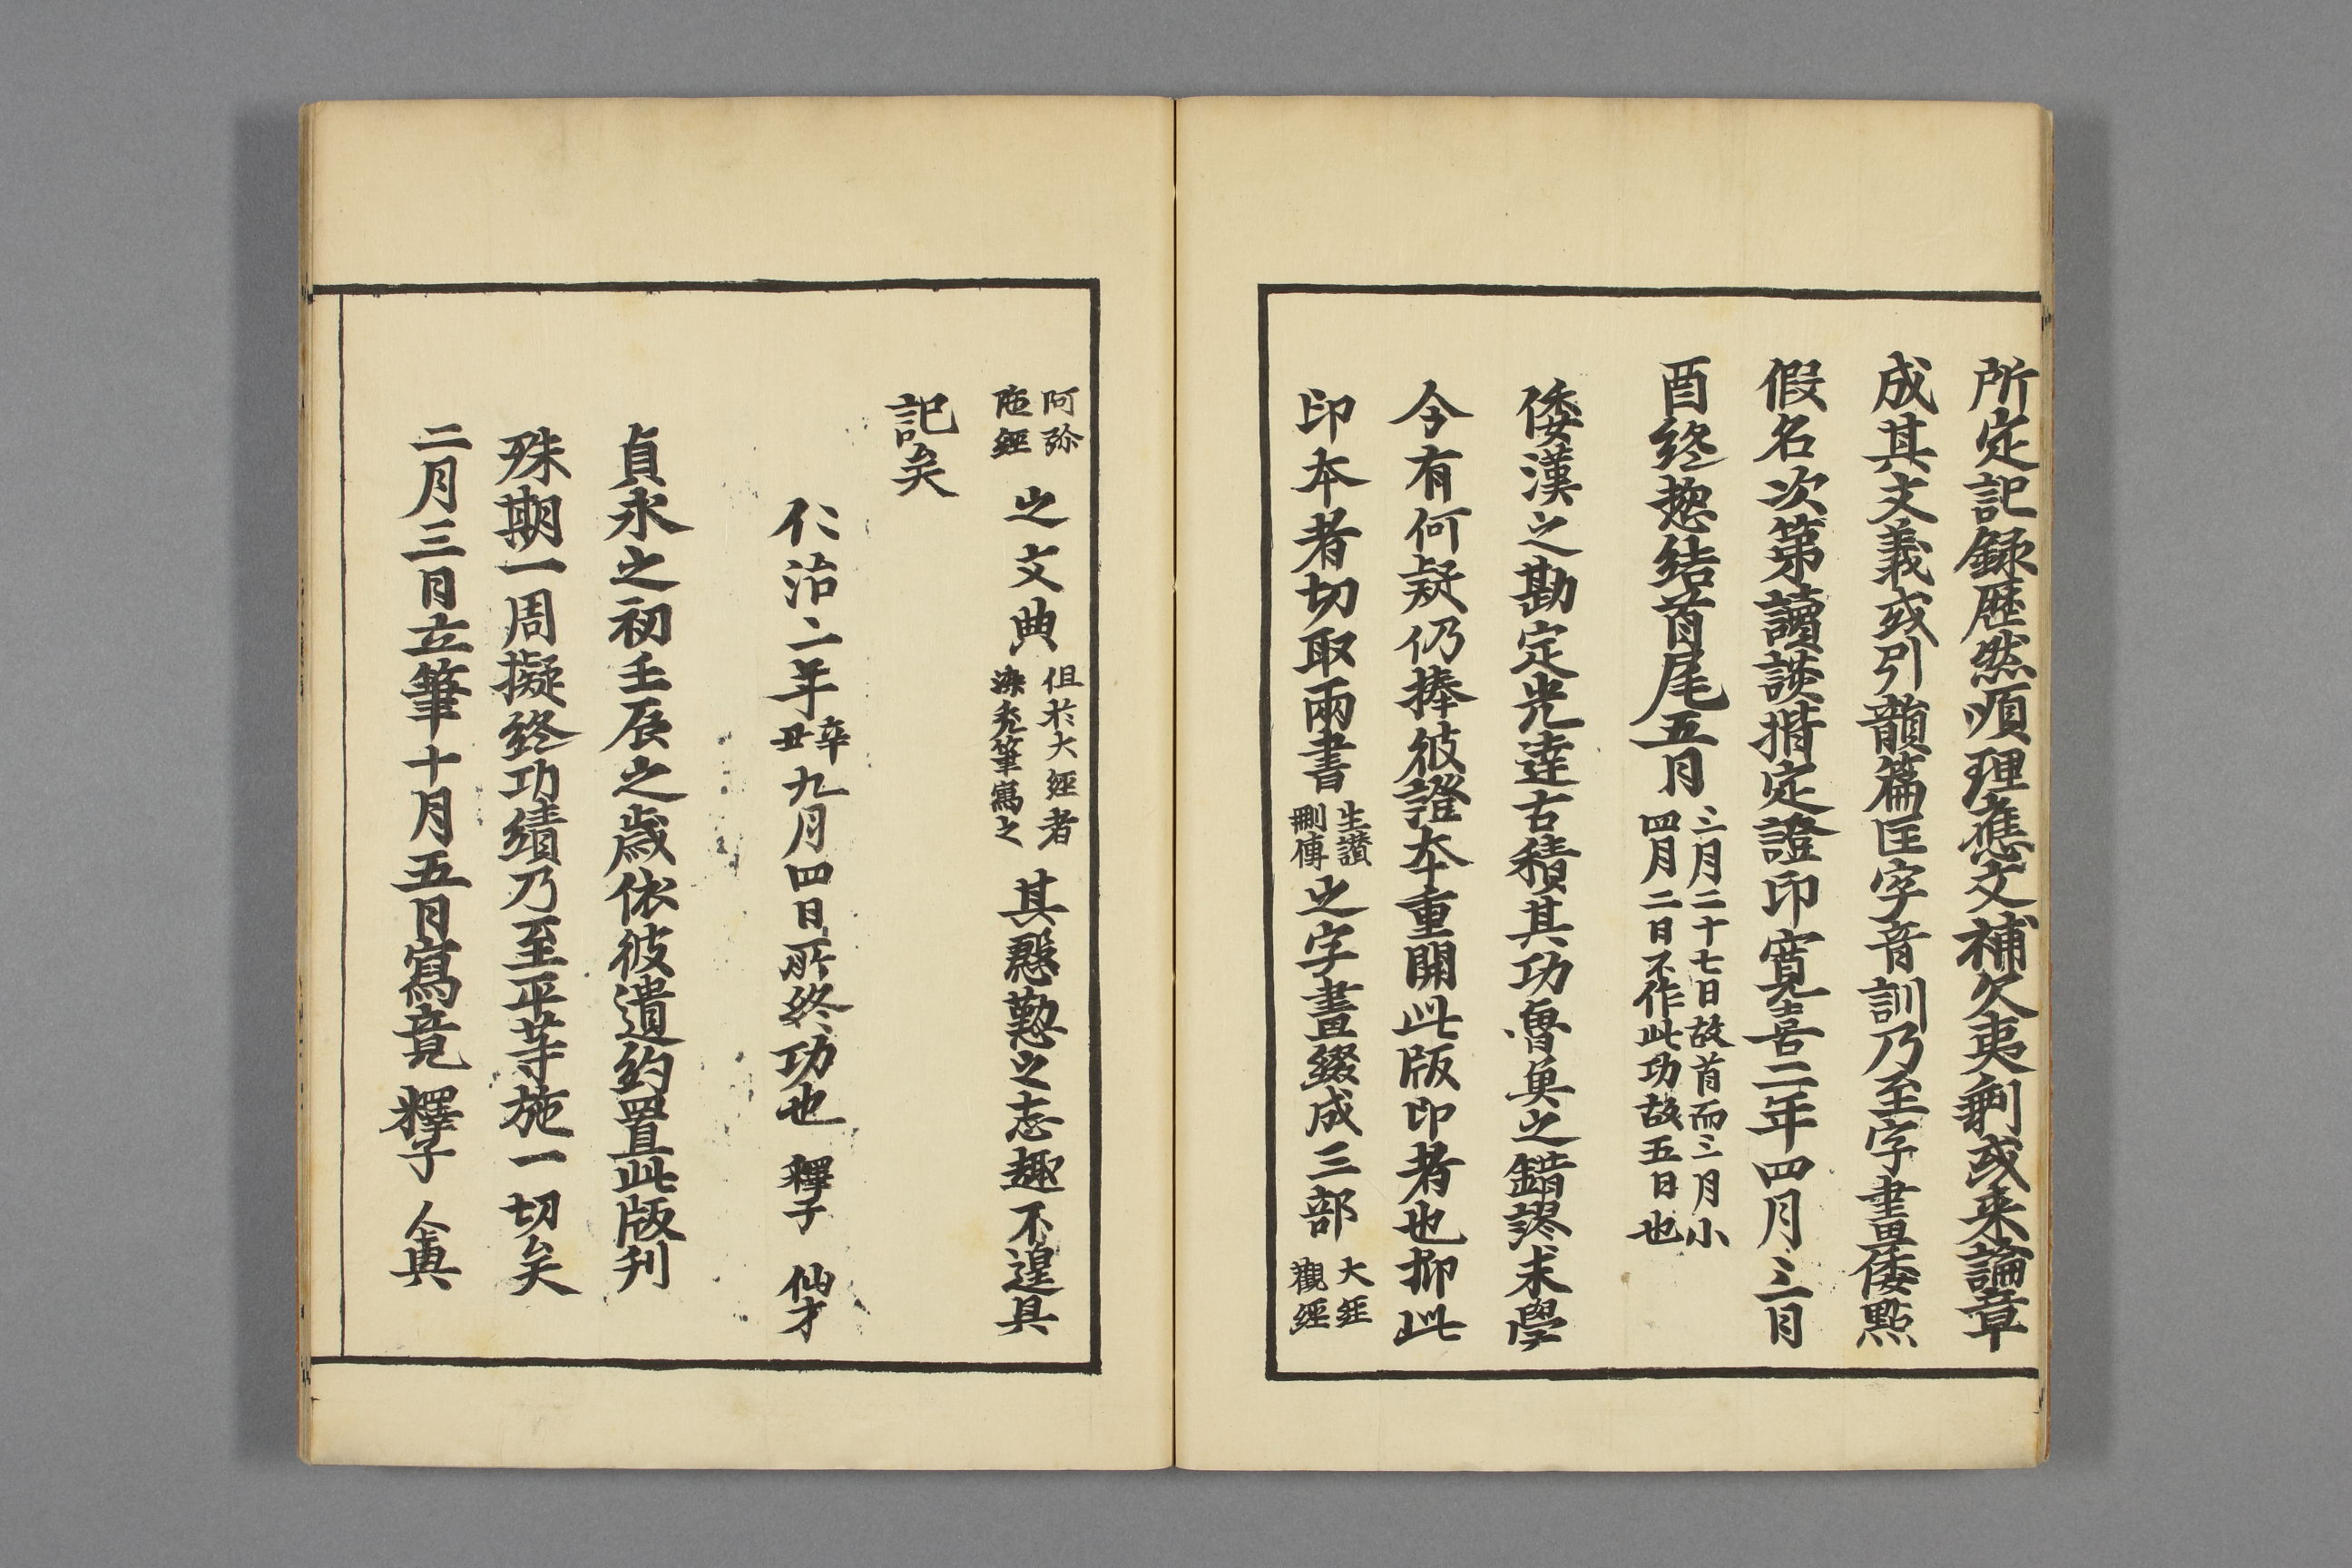 所定記録歴然順理應文補欠夷剰或来論章
成其文義或引韻篇匡字音訓乃至字畫倭點
假名次第讀談揩定證印寛喜二年四月三日
酉終惣結首尾五月三月二十七日故首而三月小
四月二日不作此功故五日也
倭漢之勘定光逹古積其功魯魚之錯謬末學
今有何疑仍捧彼證本重開此版印者也抑此
印本者切取兩書生讃
刪傳之字畫綴成三部大經
觀經
阿弥
陁經之文典但於大經者
染禿筆寫之其慇懃之志趣不遑具
記矣
仁治二年辛
丑九月四日所終功也 釋子 仙才
貞永之初壬辰之歳依彼遺約置此版刋
殊期一周擬終功績乃至平等施一切矣
二月三日立筆十月五日寫竟 釋子 人真